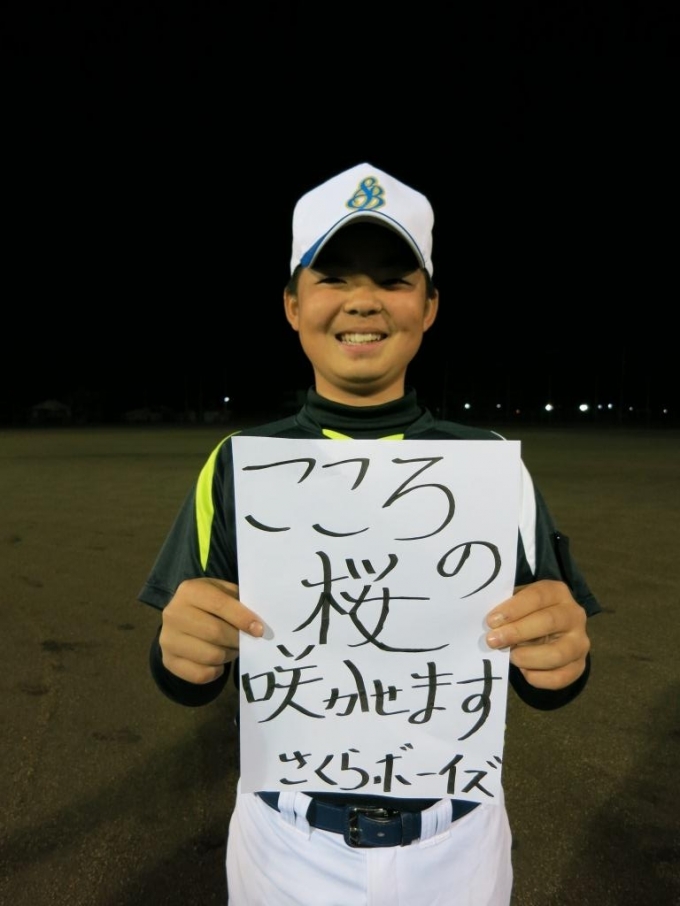 SB
こころの
桜
咲かせます
さくらボーイズ